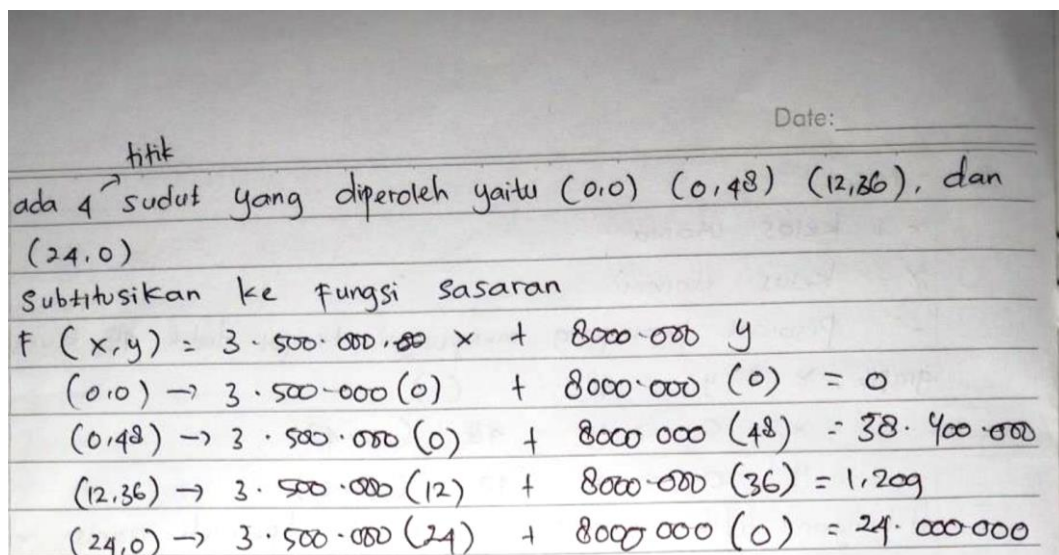 Date:
titik
ada 4 sudut yang diperoleh yaitu (0,0) (0,48) (12,36), dan
(24,0)
Subtitusikan ke Fungsi Sasaran
F (x,y) = 3 500.000.00 x + 8000.000 y
(0,0) → 3.500.000 (0) + 8000.000 (0) = 0
(0,48) → 3.500.000 (0) + 8000 000 (48) = 38.400.000
(12,36) → 3.500.000 (12) + 8000.000 (36) = 1.209
(24,0) → 3.500.000 (24) + 8000 000 (0) = 24.000.000